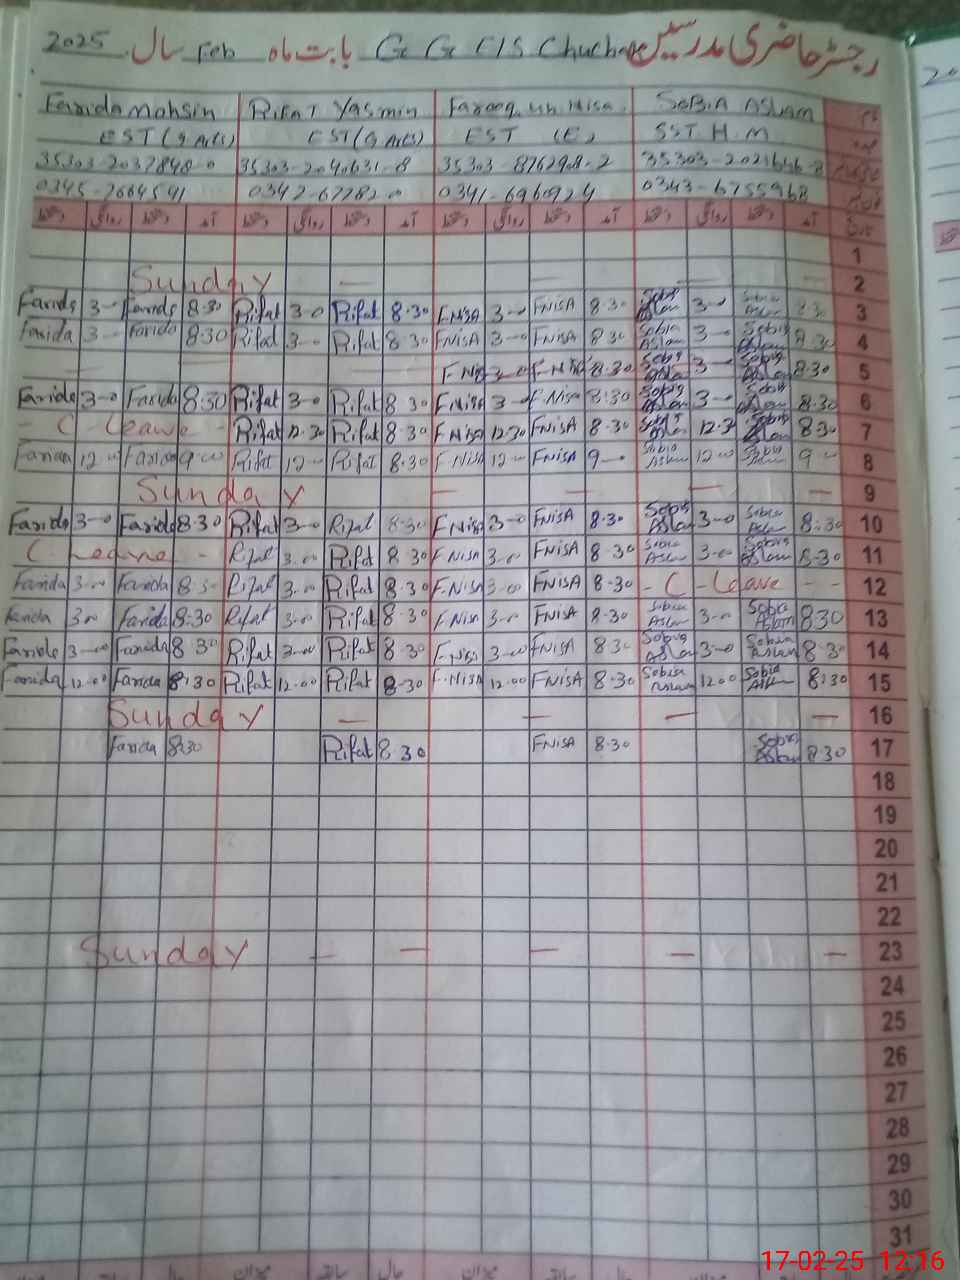 رجسٹر حاضری مدرسین G G E/S Chuchak بابت ماہ Feb سال 2025
Farida Mohsin Rifat Yasmin Farooq un Nisa SOBIA ASLAM نام
EST (G Arts) EST (G Arts) EST (E) SST H.M عہدہ
35303-2037848-0 35303-2040631-8 35303-8762908-2
0345-7664541 0342-677820 0341-6960924 0343-6755968
دستخط روانگی دستخط آمد دستخط روانگی دستخط آمد دستخط روانگی دستخط آمد دستخط روانگی دستخط آمد تاریخ
1
Sunday — — — — 2
Farida 3-0 Farida 8.30 Rifat 3-0 Rifat 8.30 F.NISA 3-0 FNISA 8.30 Sobia Aslam 3-0 Sobia Aslam 8.30 3
Farida 3- Farida 8.30 Rifat 3-0 Rifat 8.30 F.NISA 3-0 FNISA 8.30 Sobia Aslam 3-0 Sobia Aslam 8.30 4
F NISA 3-0 F-NISA 8.30 Sobia Aslam 3-0 Sobia Aslam 8:30 5
Farida 3-0 Farida 8.30 Rifat 3-0 Rifat 8.30 F.Nisa 3-0 F.Nisa 8:30 Sobia Aslam 3-0 Sobia Aslam 8:30 6
- C Leave - Rifat 12.30 Rifat 8.30 F Nisa 12.30 FNISA 8.30 Sobia Aslam 12.30 Sobia Aslam 8:30 7
Farida 12-00 Farida 9-00 Rifat 12-00 Rifat 8.30 F.NISA 12-00 FNISA 9-0 Sobia Aslam 12-00 Sobia Aslam 9-00 8
Sunday — — — — 9
Farida 3-0 Farida 8.30 Rifat 3-0 Rifat 8.30 F.NISA 3-0 FNISA 8.30 Sobia Aslam 3-0 Sobia Aslam 8:30 10
C Leave - Rifat 3.00 Rifat 8.30 F.NISA 3-00 FNISA 8.30 Sobia Aslam 3-00 Sobia Aslam 8.30 11
Farida 3-00 Farida 8.30 Rifat 3.00 Rifat 8.30 F.NISA 3-00 FNISA 8.30 - C - Leave - - 12
Farida 3-00 Farida 8:30 Rifat 3-00 Rifat 8.30 F.NISA 3-00 FNISA 8.30 Sobia Aslam 3-00 Sobia Aslam 8.30 13
Farida 3-00 Farida 8.30 Rifat 3-00 Rifat 8.30 F.Nisa 3-00 FNISA 8.30 Sobia Aslam 3-00 Sobia Aslam 8.30 14
Farida 12.00 Farida 8:30 Rifat 12.00 Rifat 8.30 F.NISA 12.00 FNISA 8.30 Sobia Aslam 12.00 Sobia Aslam 8:30 15
Sunday — — — — 16
Farida 8.30 Rifat 8.30 FNISA 8.30 Sobia Aslam 8.30 17
18
19
20
21
22
Sunday — — — — — 23
24
25
26
27
28
29
30
31
17-02-25 12:16